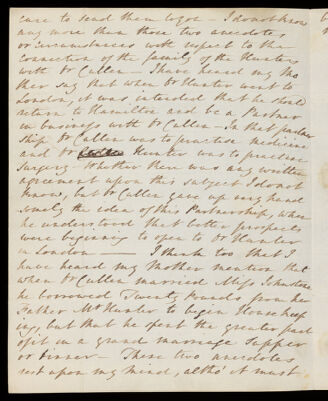 care to send them to you — I do not know
any more than those two anecdotes
or circumstances with respect to the
connection of the family of the Hunters
with Dr Cullen — I have heard my Mo
ther say that when Dr Hunter went to
London, it was intended that he should
return to Hamilton and be a Partner
in business with Dr Cullen — In that partner
ship Dr Cullen was to practise Medicine
and Dr Hunter was to practise
Surgery Whether there was any written
agreement upon this subject I do not
know, but Dr Cullen gave up very hand
somely the idea of this Partnership, when
he understood that better prospects
were beginning to open to Dr Hunter
in London — I think too that I
have heard my Mother mention that
when Dr Cullen married Miss Johnstone
he borrowed Twenty Pounds from her
Father Mr Hunter to begin House keep
ing, but that he spent the greater part
of it in a grand marriage Supper
or dinner — These two anecdotes
rest upon my mind, altho' it must